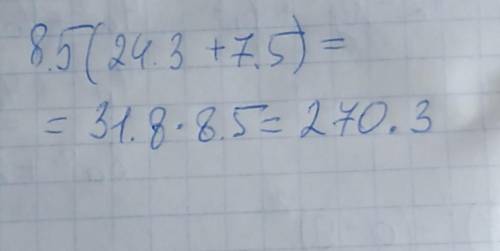 8.5(24.3 + 7.5) =
= 31.8 · 8.5 = 270.3